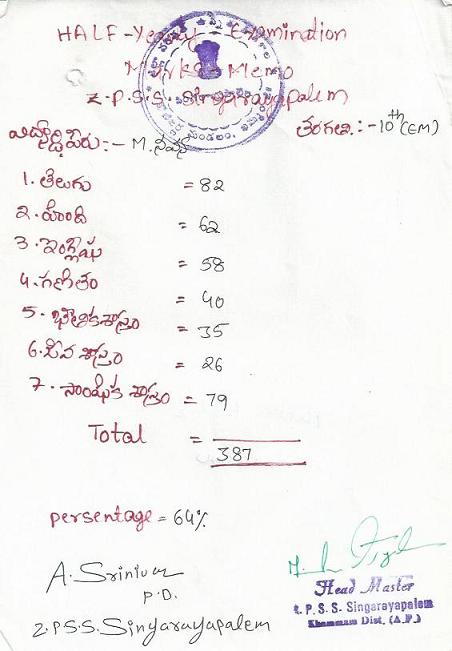 HALF-Yearly Examination
Marks Memo
Z.P.S.S. Singarayapalem
తరగతి :- 10th (EM)
విద్యార్థి పేరు :- M.
1. తెలుగు = 82
2. హింది = 62
3. ఇంగ్లీషు = 58
4. గణితం = 40
5. భౌతికశాస్త్రం = 35
6. జీవ శాస్త్రం = 26
7. సాంఘిక శాస్త్రం = 79
Total =
387
persentage = 64%
A. Srinivas
P.D.
Z.P.S.S. Singarayapalem
Head Master
Z. P. S. S. Singarayapalem
Khammam Dist. (A.P.)